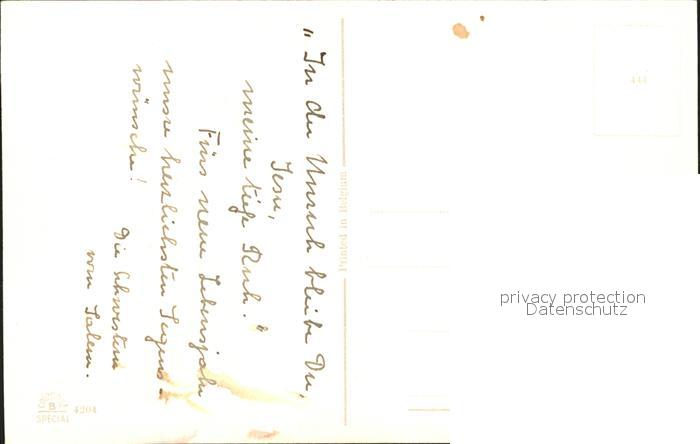 „In der Unruh bleibe Du,
Jesu,
meine tiefe Ruh."
Fürs neue Lebensjahr
unsre herzlichsten Segens-
wünsche!
Die Schwestern
vom Salem.
Printed in Belgium
444
B
SPECIAL 4204
privacy protection
Datenschutz